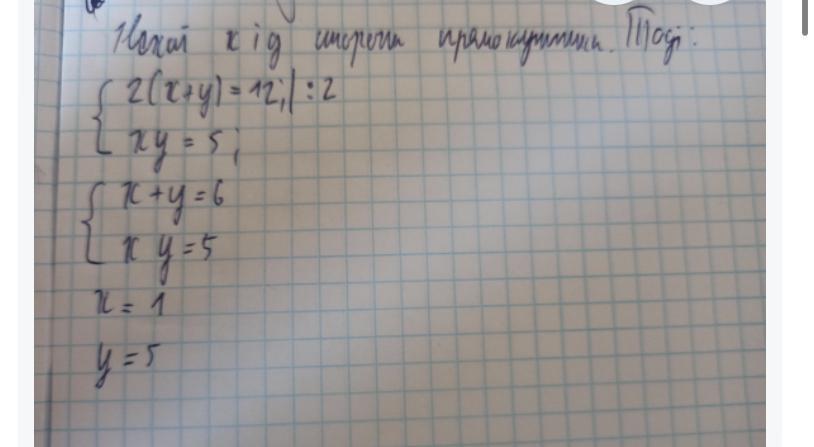 Нехай x і y сторони прямокутника. Тоді:
2(x+y) = 12; | : 2
xy = 5;
x+y = 6
x y = 5
x = 1
y = 5